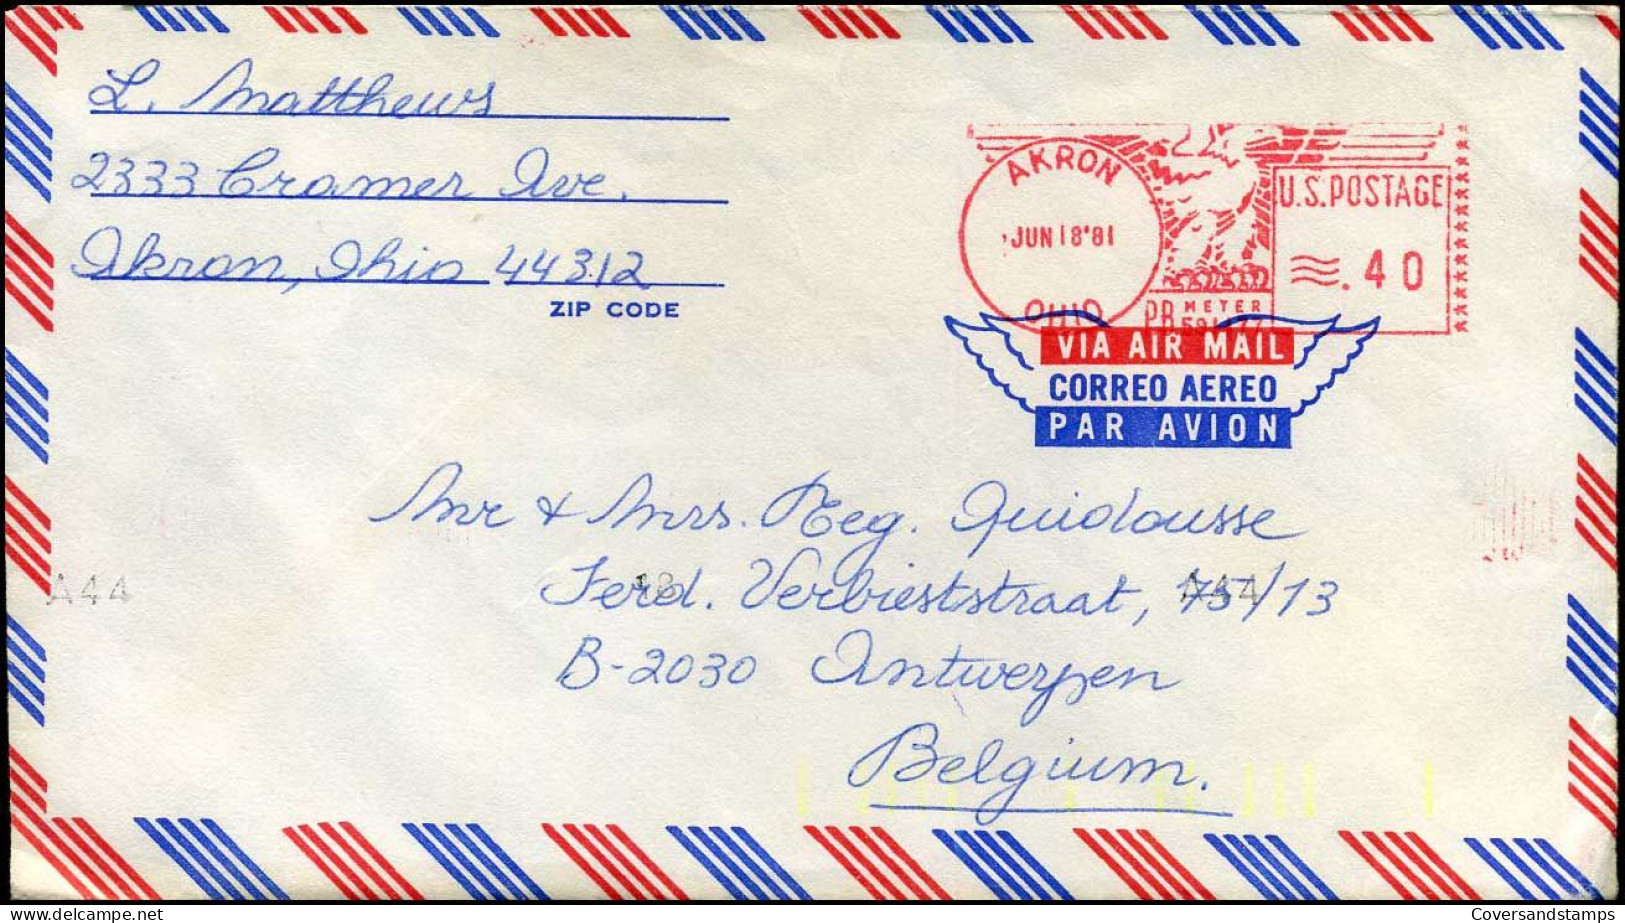 L. Matthews
2333 Cramer Ave.
Akron, Ohio 44312
ZIP CODE
AKRON
JUN 18 '81
OHIO
PB METER
U.S. POSTAGE
.40
VIA AIR MAIL
CORREO AEREO
PAR AVION
Mr & Mrs. Reg. Quidousse
Ferd. Verbieststraat, 75/13
B-2030 Antwerpen
Belgium.
A44
A44
Coversandstamps